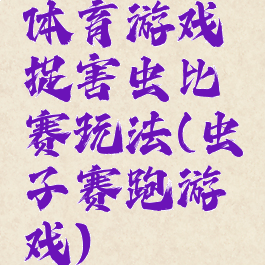 体育游戏
捉害虫比
赛玩法(虫
子赛跑游
戏)